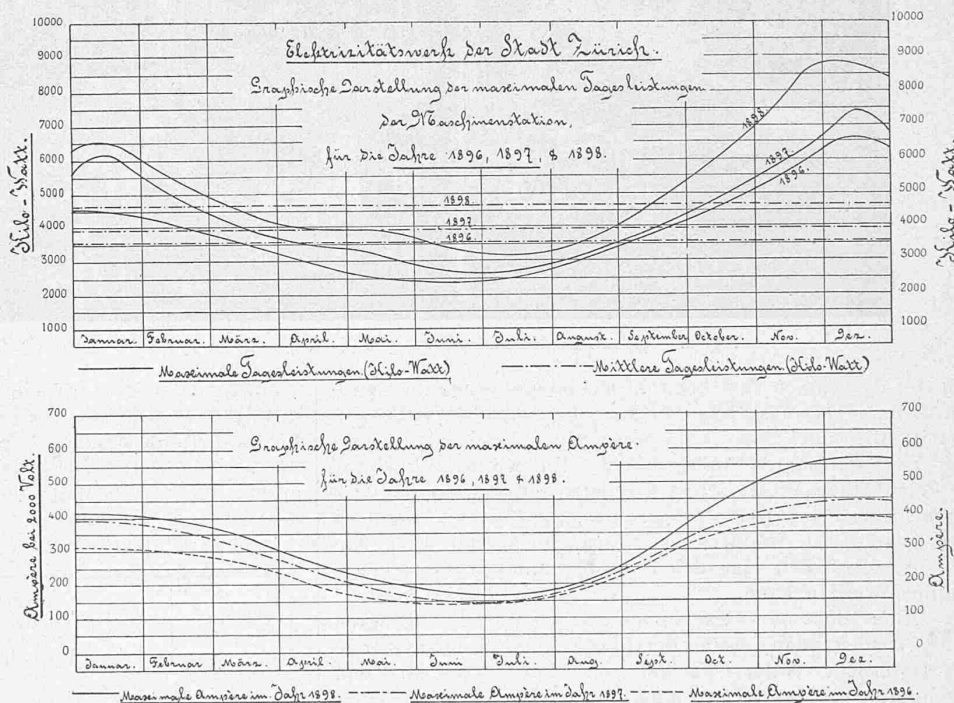 Elektrizitätswerk der Stadt Zürich.
Graphische Darstellung der maximalen Tagesleistungen
der Maschinenstation,
für die Jahre 1896, 1897, & 1898.
Kilo-Watt.
10000
9000
8000
7000
6000
5000
4000
3000
2000
1000
1898.
1897
1896.
1898.
1897.
1896
10000
9000
8000
7000
6000
5000
4000
3000
2000
1000
Kilo-Watt.
Januar. Februar. März. April. Mai. Juni. Juli. August. September October. Nov. Dez.
Maximale Tagesleistungen. (Kilo-Watt) Mittlere Tagesleistungen. (Kilo-Watt)
Graphische Darstellung der maximalen Ampère.
für die Jahre 1896, 1897 & 1898.
Ampère bei 2000 Volt.
700
600
500
400
300
200
100
0
700
600
500
400
300
200
100
0
Ampère.
Januar. Februar März. April. Mai. Juni Juli. Aug. Sept. Oct. Nov. Dez.
Maximale Ampère im Jahr 1898. Maximale Ampère im Jahr 1897. Maximale Ampère im Jahr 1896.